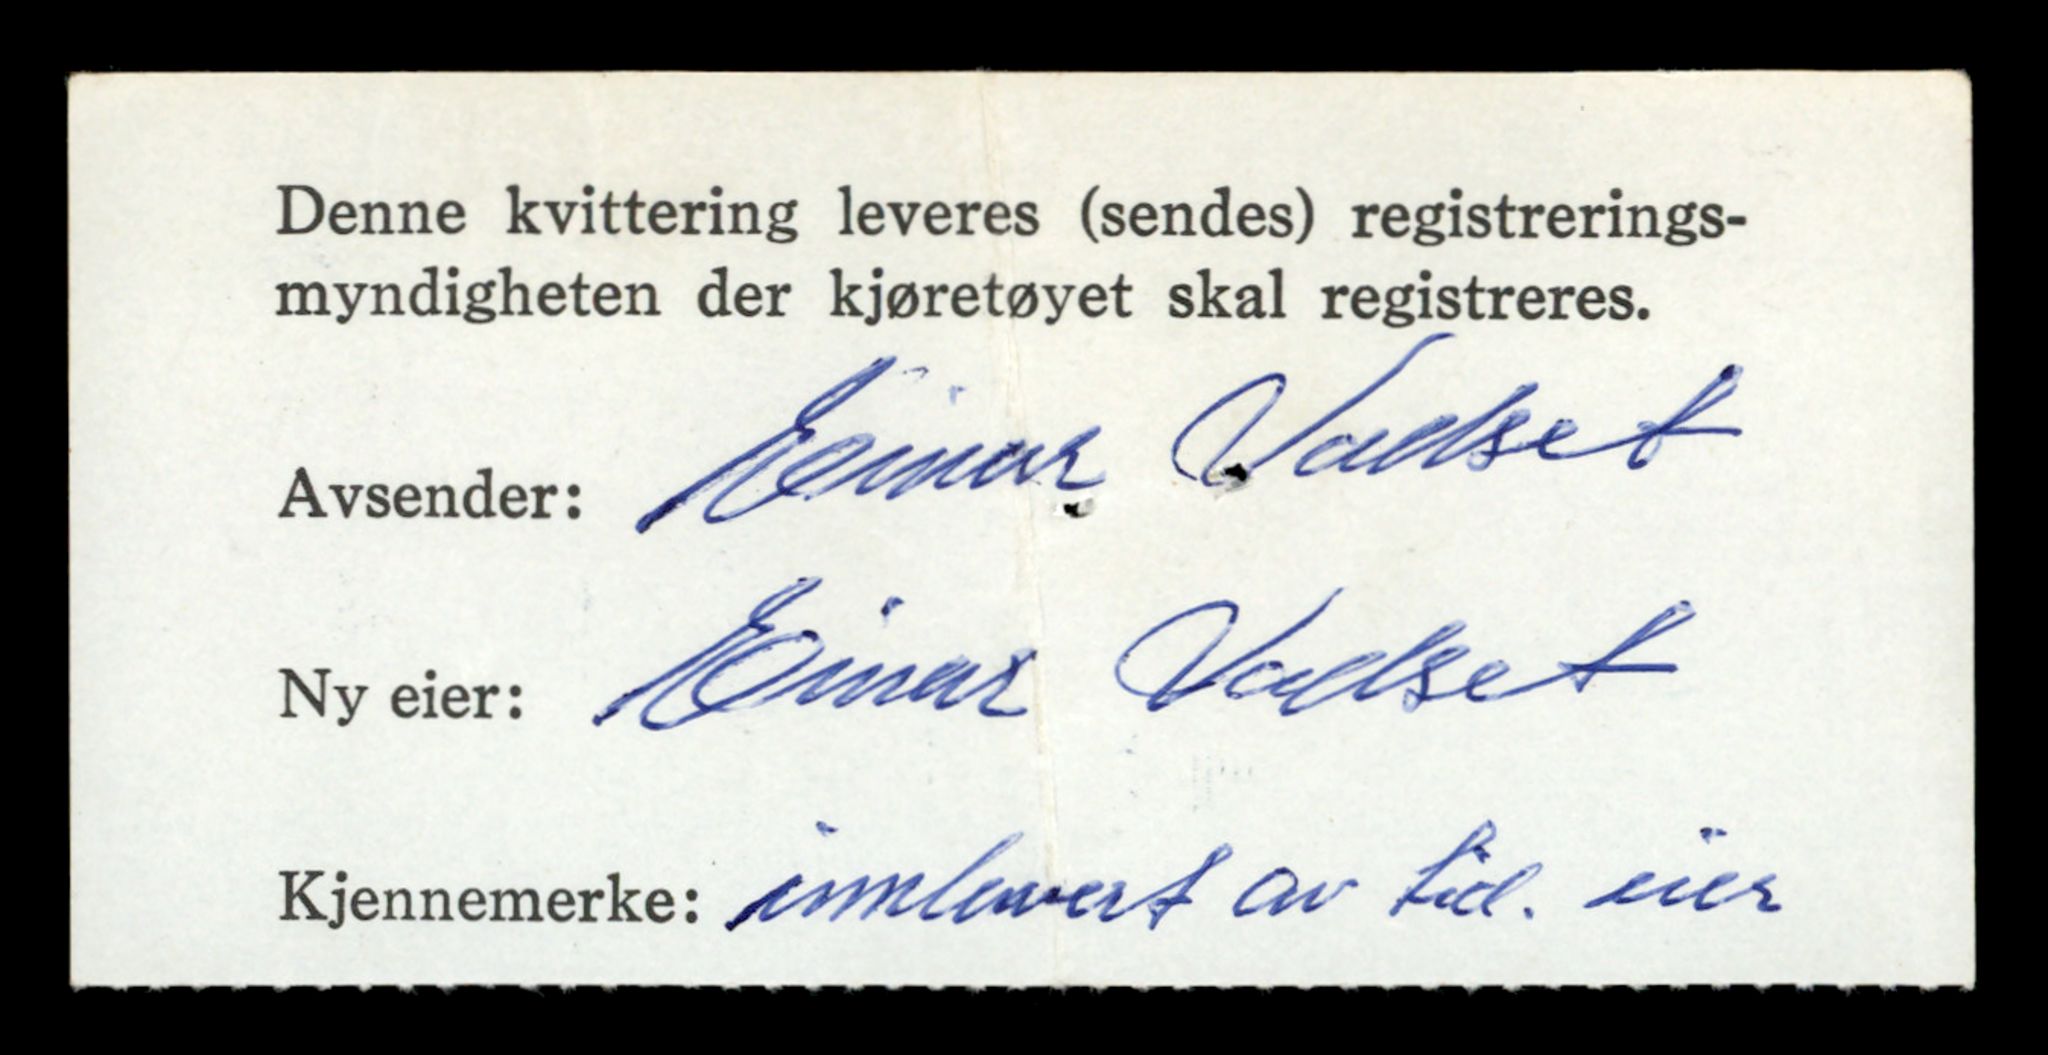 Denne kvittering leveres (sendes) registrerings-
myndigheten der kjøretøyet skal registreres.
Avsender: Einar Vadset
Ny eier: Einar Vadset
Kjennemerke: innlevert av tid. eier